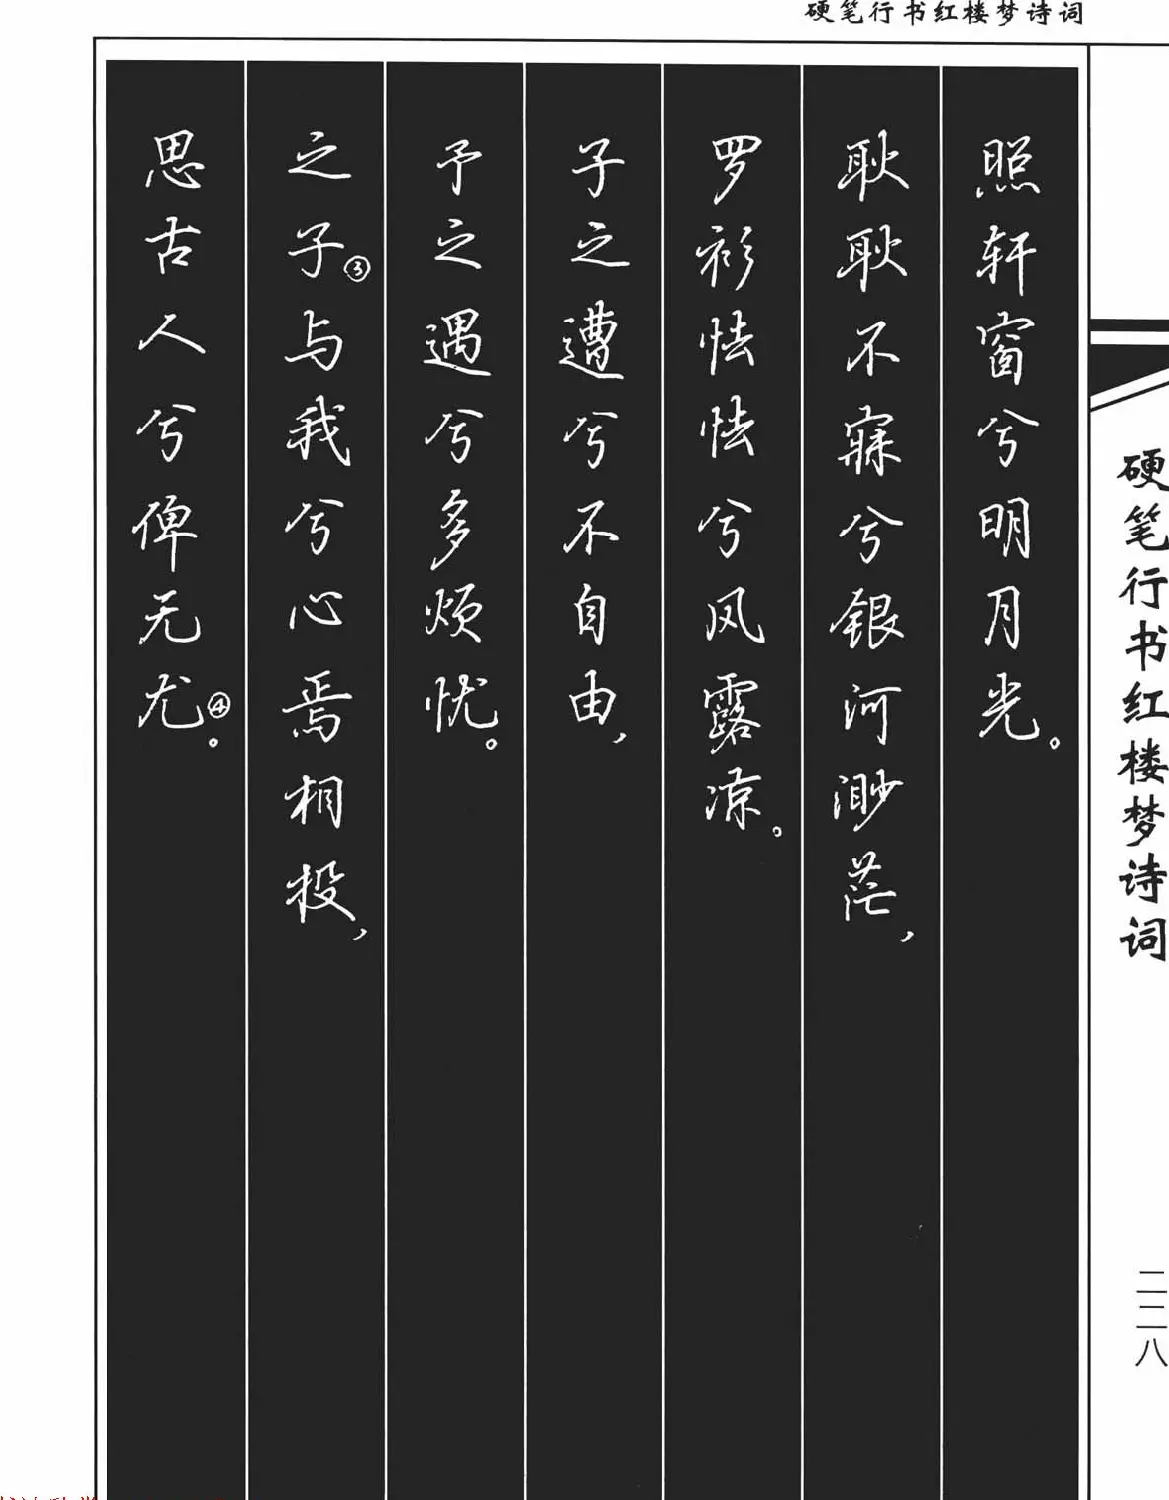 硬笔行书红楼梦诗词
照轩窗兮明月光。
耿耿不寐兮银河渺茫，
罗衫怯怯兮风露凉。
子之遭兮不自由，
予之遇兮多烦忧。
之子③与我兮心焉相投，
思古人兮俾无尤④。
硬笔行书红楼梦诗词
二二八